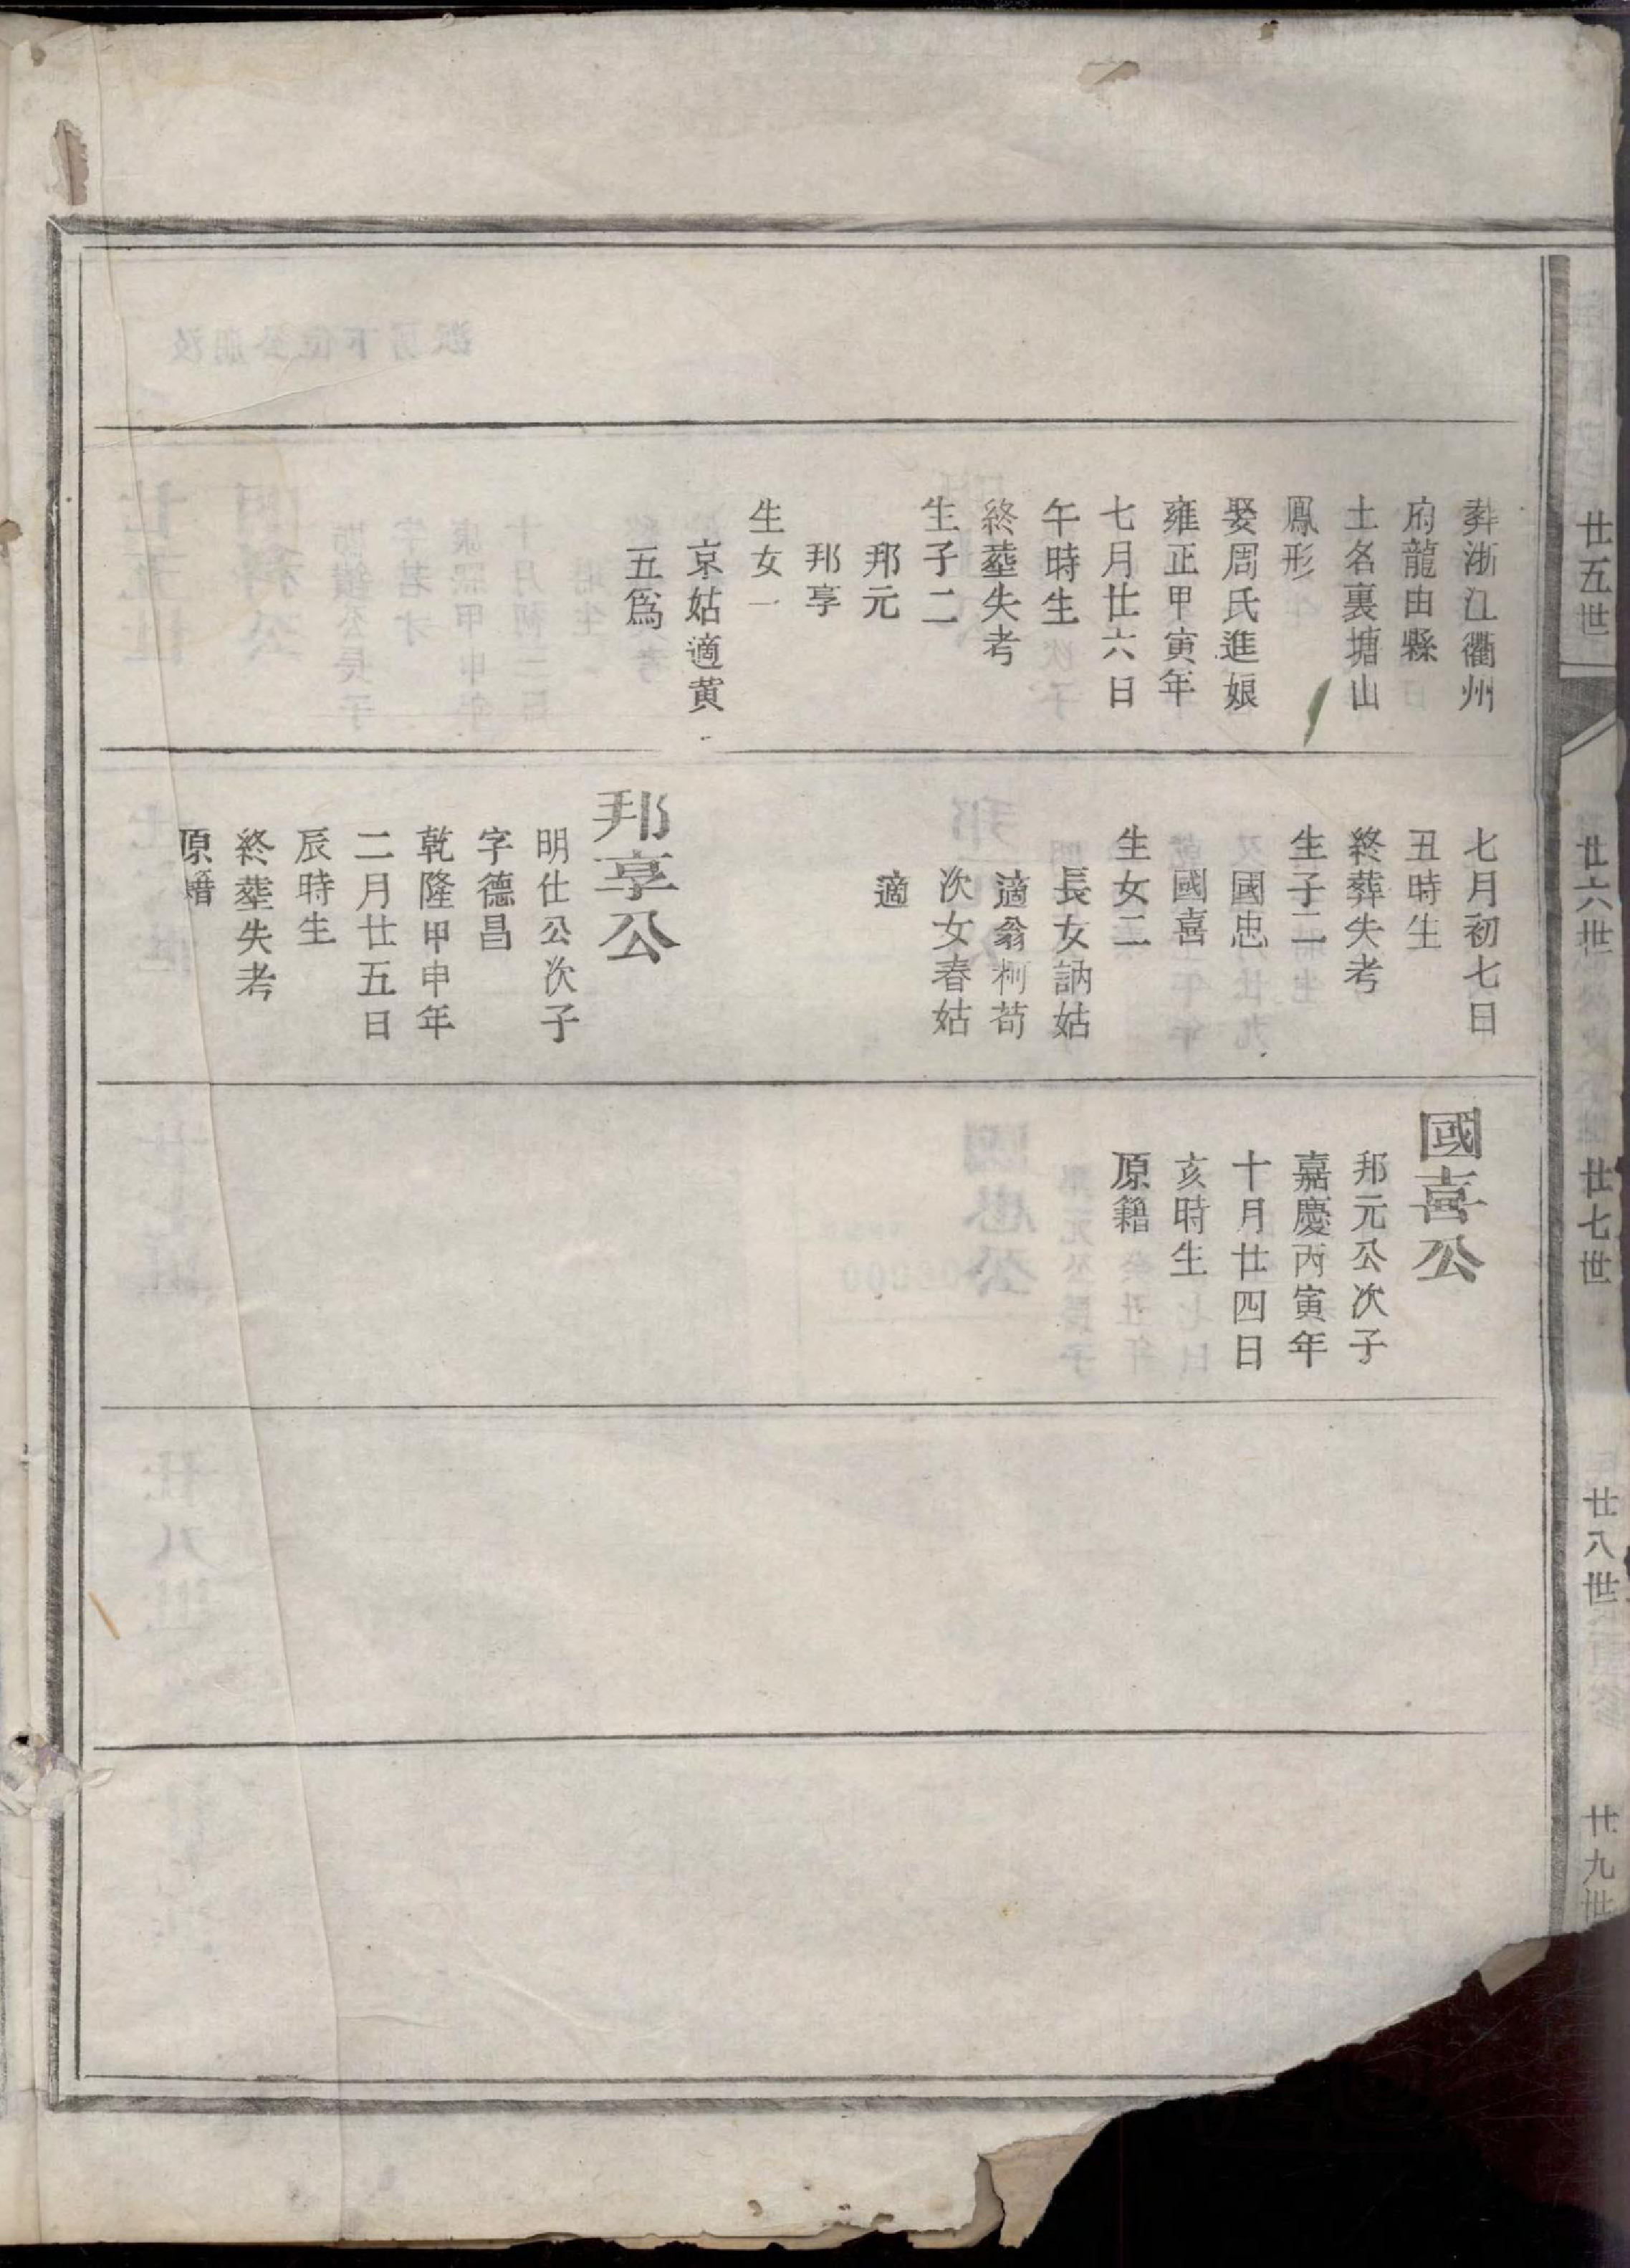 廿五世
廿六世
廿七世
廿八世
廿九世
葬浙江衢州
府龍由縣
土名裏塘山
鳳形
娶周氏進娘
雍正甲寅年
七月廿六日
午時生
終塟失考
生子二
邦元
邦享
生女一
京姑適黄
五爲
七月初七日
丑時生
終葬失考
生子二
國忠
國喜
生女二
長女訥姑
適翁柯苟
次女春姑
適
邦享公
明仕公次子
字德昌
乾隆甲申年
二月廿五日
辰時生
終塟失考
原籍
國喜公
邦元公次子
嘉慶丙寅年
十月廿四日
亥時生
原籍